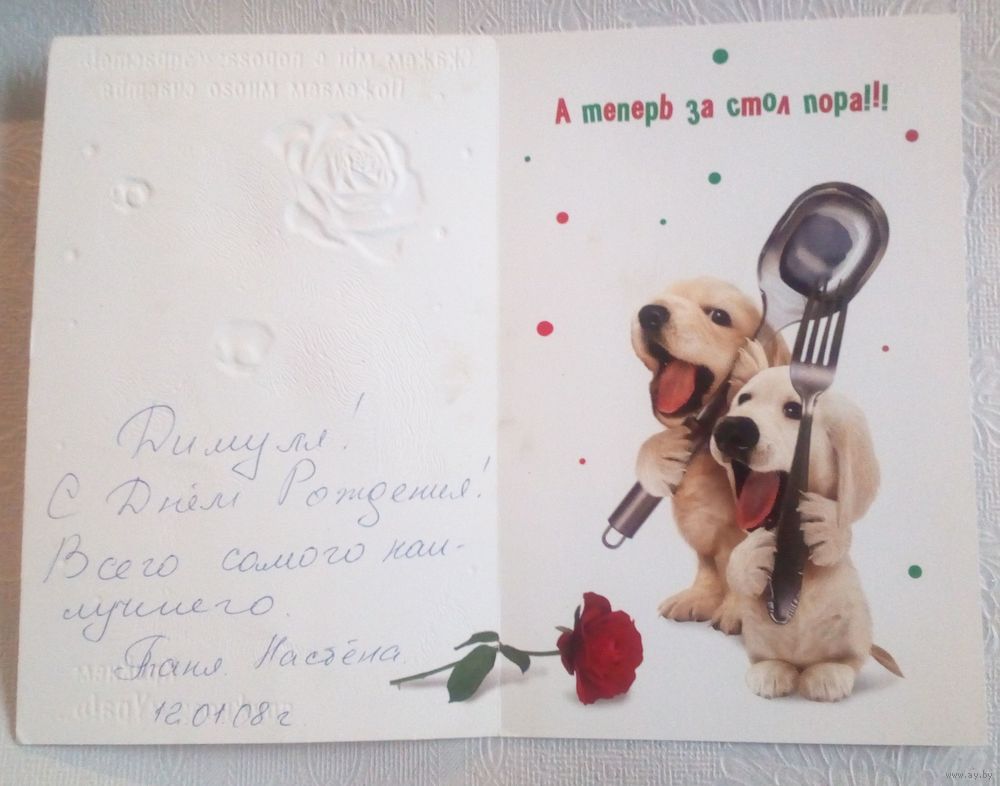 Скажем мы с порога: «Здравствуй!»
Пожелаем много счастья
Димуля!
С Днём Рождения!
Всего самого наи-
лучшего.
Таня. Настёна.
12.01.08 г.
А теперь за стол пора!!!
www.ay.by